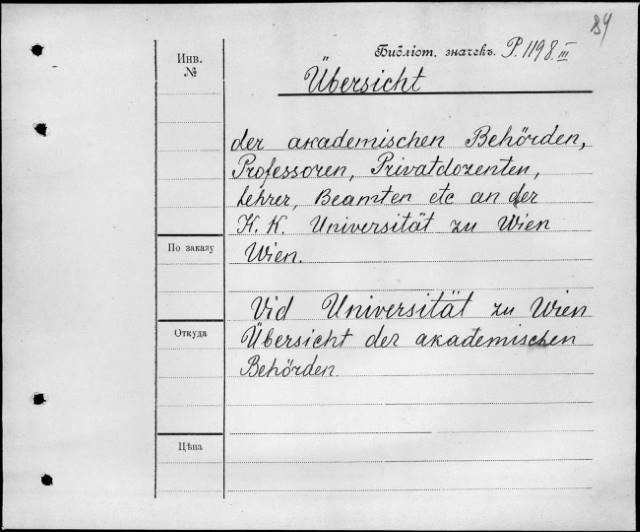 84
Инв.
№
Библіот. значекъ. P. 1198.III
Übersicht
der akademischen Behörden,
Professoren, Privatdozenten,
Lehrer, Beamten etc an der
K. K. Universität zu Wien
По заказу
Wien.
Vid Universität zu Wien
Откуда
Übersicht der akademischen
Behörden.
Цѣна